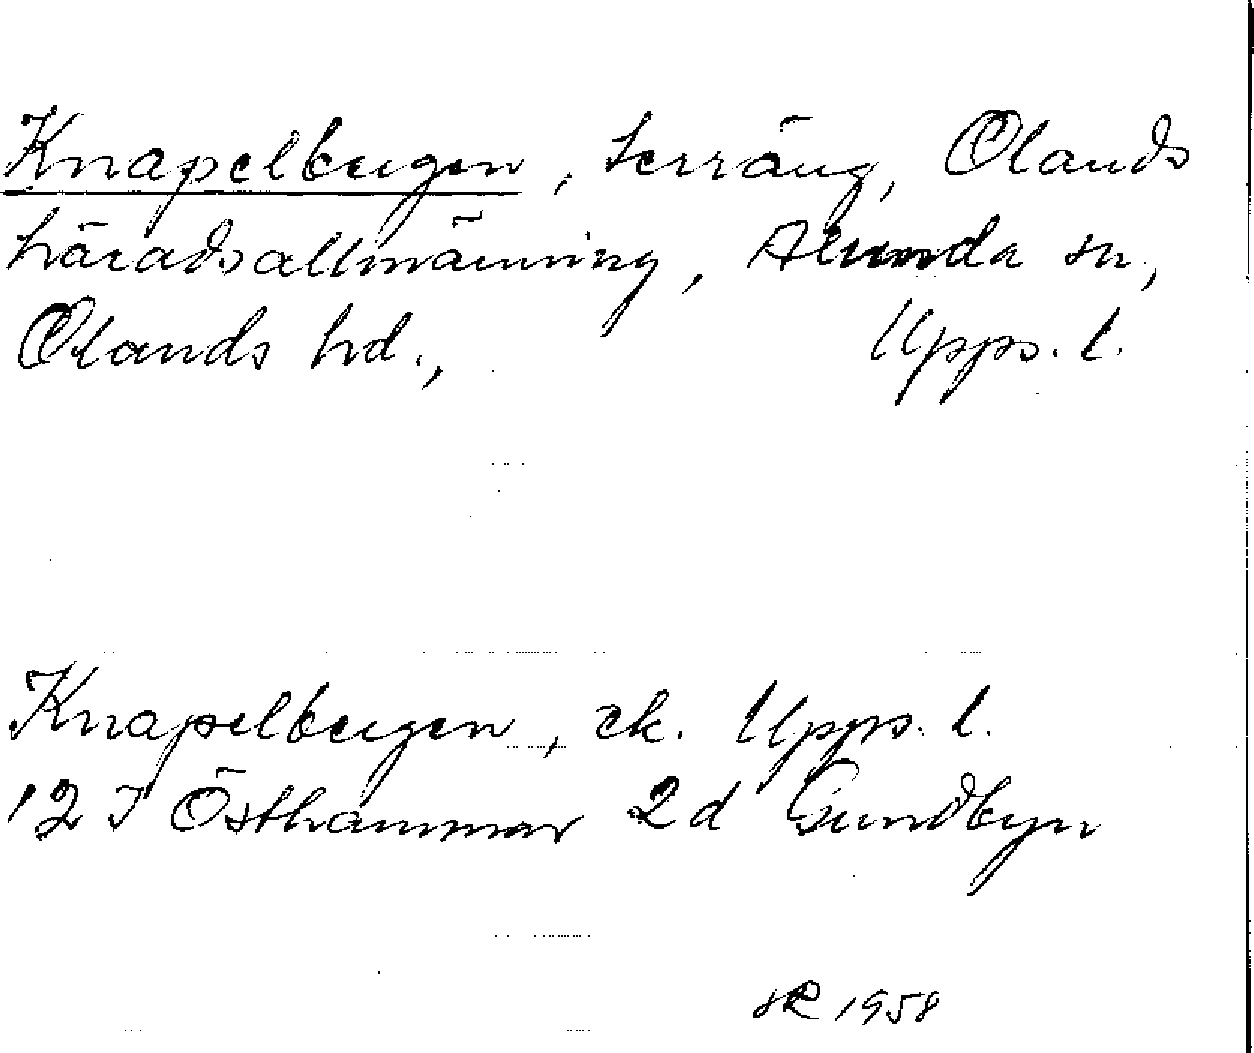 Knapelbergen, terräng, Olands
häradsallmänning, Alunda sn,
Olands hd., Upps. l.
Knapelbergen, ek. Upps. l.
12 I Östhammar 2d Gundbyn
1958